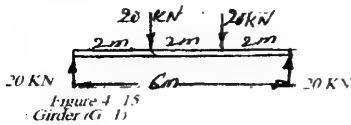 20 KN 20 KN
2m 2m 2m
20 KN 6m 20 KN
Figure 4-15
Girder (G-1)